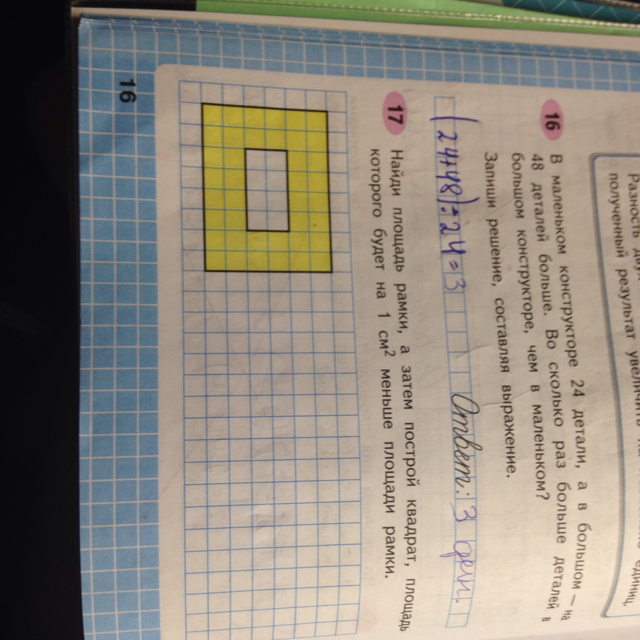 Разность
полученный результат увеличить на единиц.
16 В маленьком конструкторе 24 детали, а в большом — на
48 деталей больше. Во сколько раз больше деталей в
большом конструкторе, чем в маленьком?
Запиши решение, составляя выражение.
(24+48):24=3 Ответ: 3 дет.
17 Найди площадь рамки, а затем построй квадрат, площадь
которого будет на 1 см² меньше площади рамки.
16